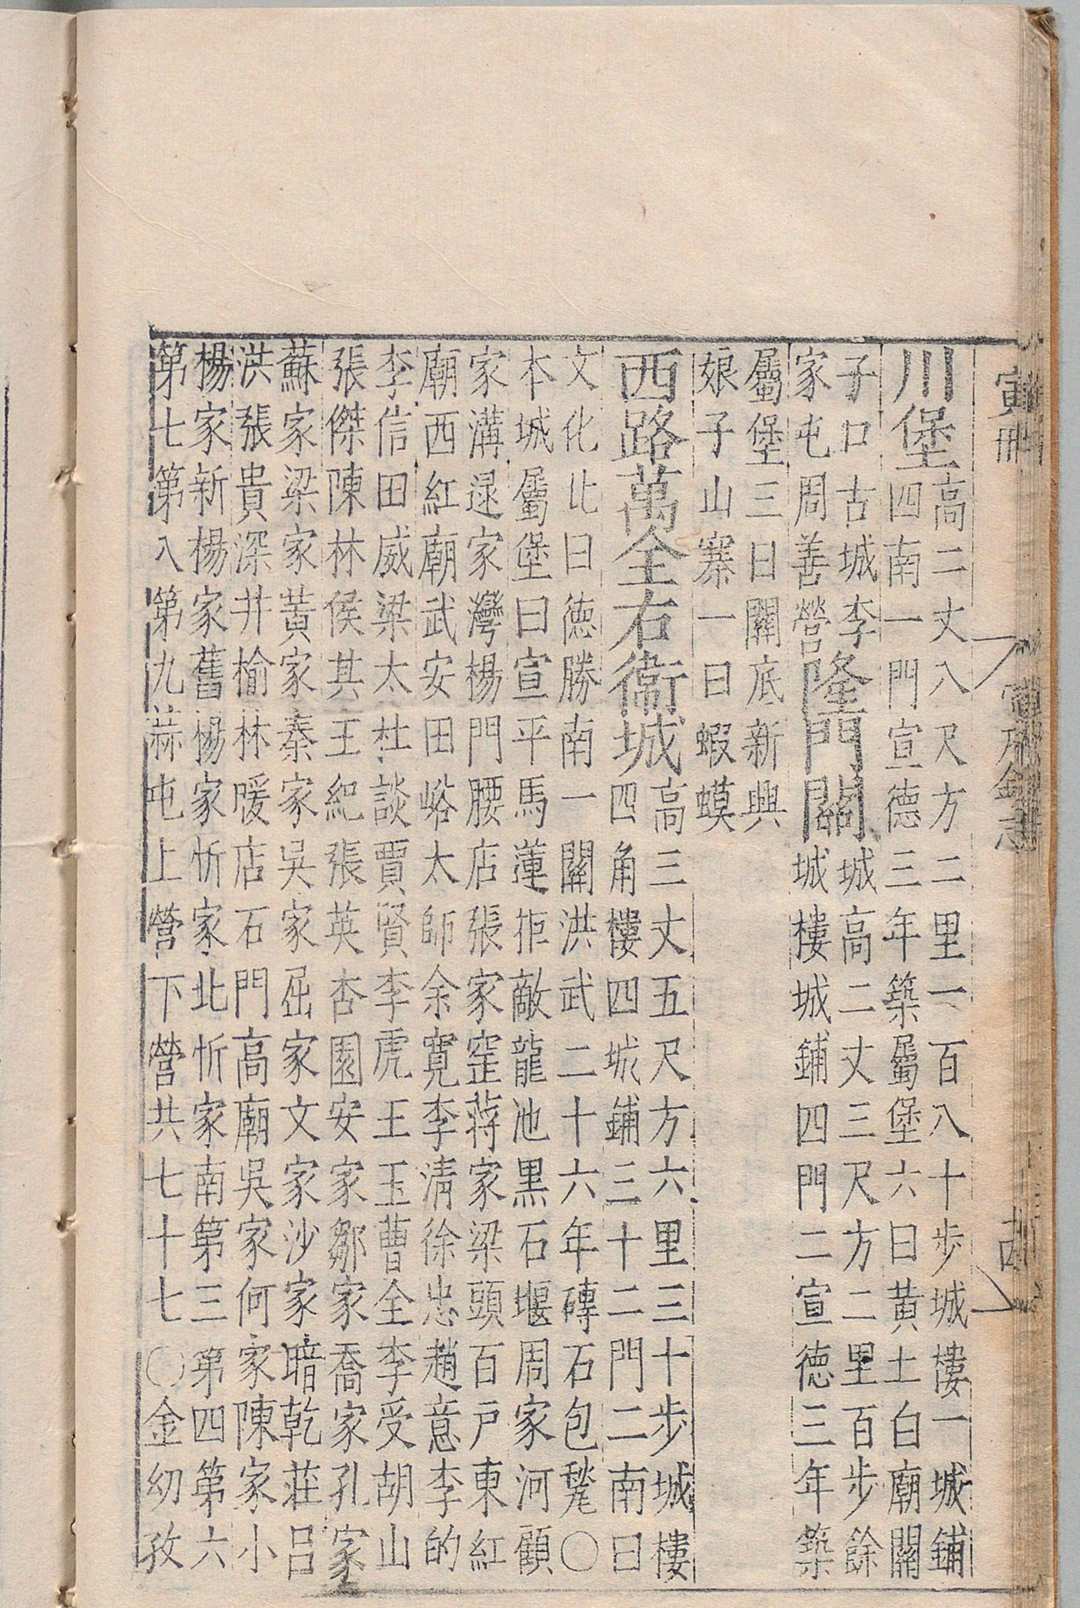 寅冊
川堡
高二丈八尺方二里一百八十步城樓一城鋪
四南一門宣德三年築屬堡六曰黃土白廟關
子口古城李
家屯周善營
隆門關
城高二丈三尺方二里百步餘
城樓城鋪四門二宣德三年築
屬堡三曰關底新興
娘子山寨一曰蝦蟆
西路萬全右衛城
高三丈五尺方六里三十步城樓
四角樓四城鋪三十二門二南曰
文化北曰德勝南一關洪武二十六年磚石包甃○
本城屬堡曰宣平馬蓮拒敵龍池黑石堰周家河顧
家溝逯家灣楊門腰店張家窪蔣家梁頭百戶東紅
廟西紅廟武安田峪太師余寬李清徐忠趙意李的
李信田威梁太杜談賈賢李虎王玉曹全李受胡山
張傑陳林侯其王紀張英杏園安家鄒家喬家孔家
蘇家梁家黃家秦家吳家屈家文家沙家暗乾莊呂
洪張貴深井榆林暖店石門高廟吳家何家陳家小
楊家新楊家舊楊家忻家北忻家南第三第四第六
第七第八第九蒜屯上營下營共七十七○金幼孜